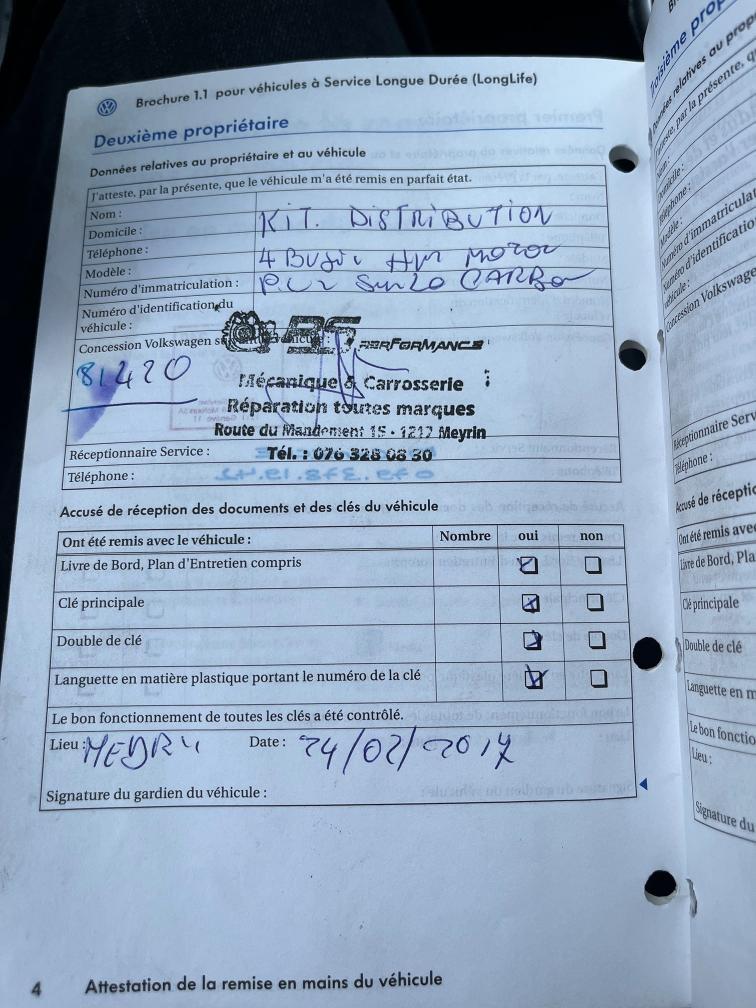 Brochure 1.1 pour véhicules à Service Longue Durée (LongLife)
Deuxième propriétaire
Données relatives au propriétaire et au véhicule
J'atteste, par la présente, que le véhicule m'a été remis en parfait état.
Nom :
Domicile : KIT. DISTRIBUTION
Téléphone :
Modèle : 4 HM MOTOR
Numéro d'immatriculation :
Numéro d'identification du
véhicule :
Concession Volkswagen
PERFORMANCE
81420
Mécanique & Carrosserie
Réparation toutes marques
Route du Mandement 15 - 1217 Meyrin
Réceptionnaire Service :
Tél. : 076 328 08 30
Téléphone :
Accusé de réception des documents et des clés du véhicule
Ont été remis avec le véhicule : Nombre oui non
Livre de Bord, Plan d'Entretien compris
Clé principale
Double de clé
Languette en matière plastique portant le numéro de la clé
Le bon fonctionnement de toutes les clés a été contrôlé.
Lieu : Date : 24/02/2017
Signature du gardien du véhicule :
4 Attestation de la remise en mains du véhicule
Troisième
Données relatives au
Téléphone :
Modèle :
Numéro d'identification
véhicule :
Concession Volkswagen
Réceptionnaire
Téléphone :
Accusé de
Ont été remis
Livre de Bord, Plan
Clé principale
Double de clé
Languette en
Le bon
Lieu :
Signature du